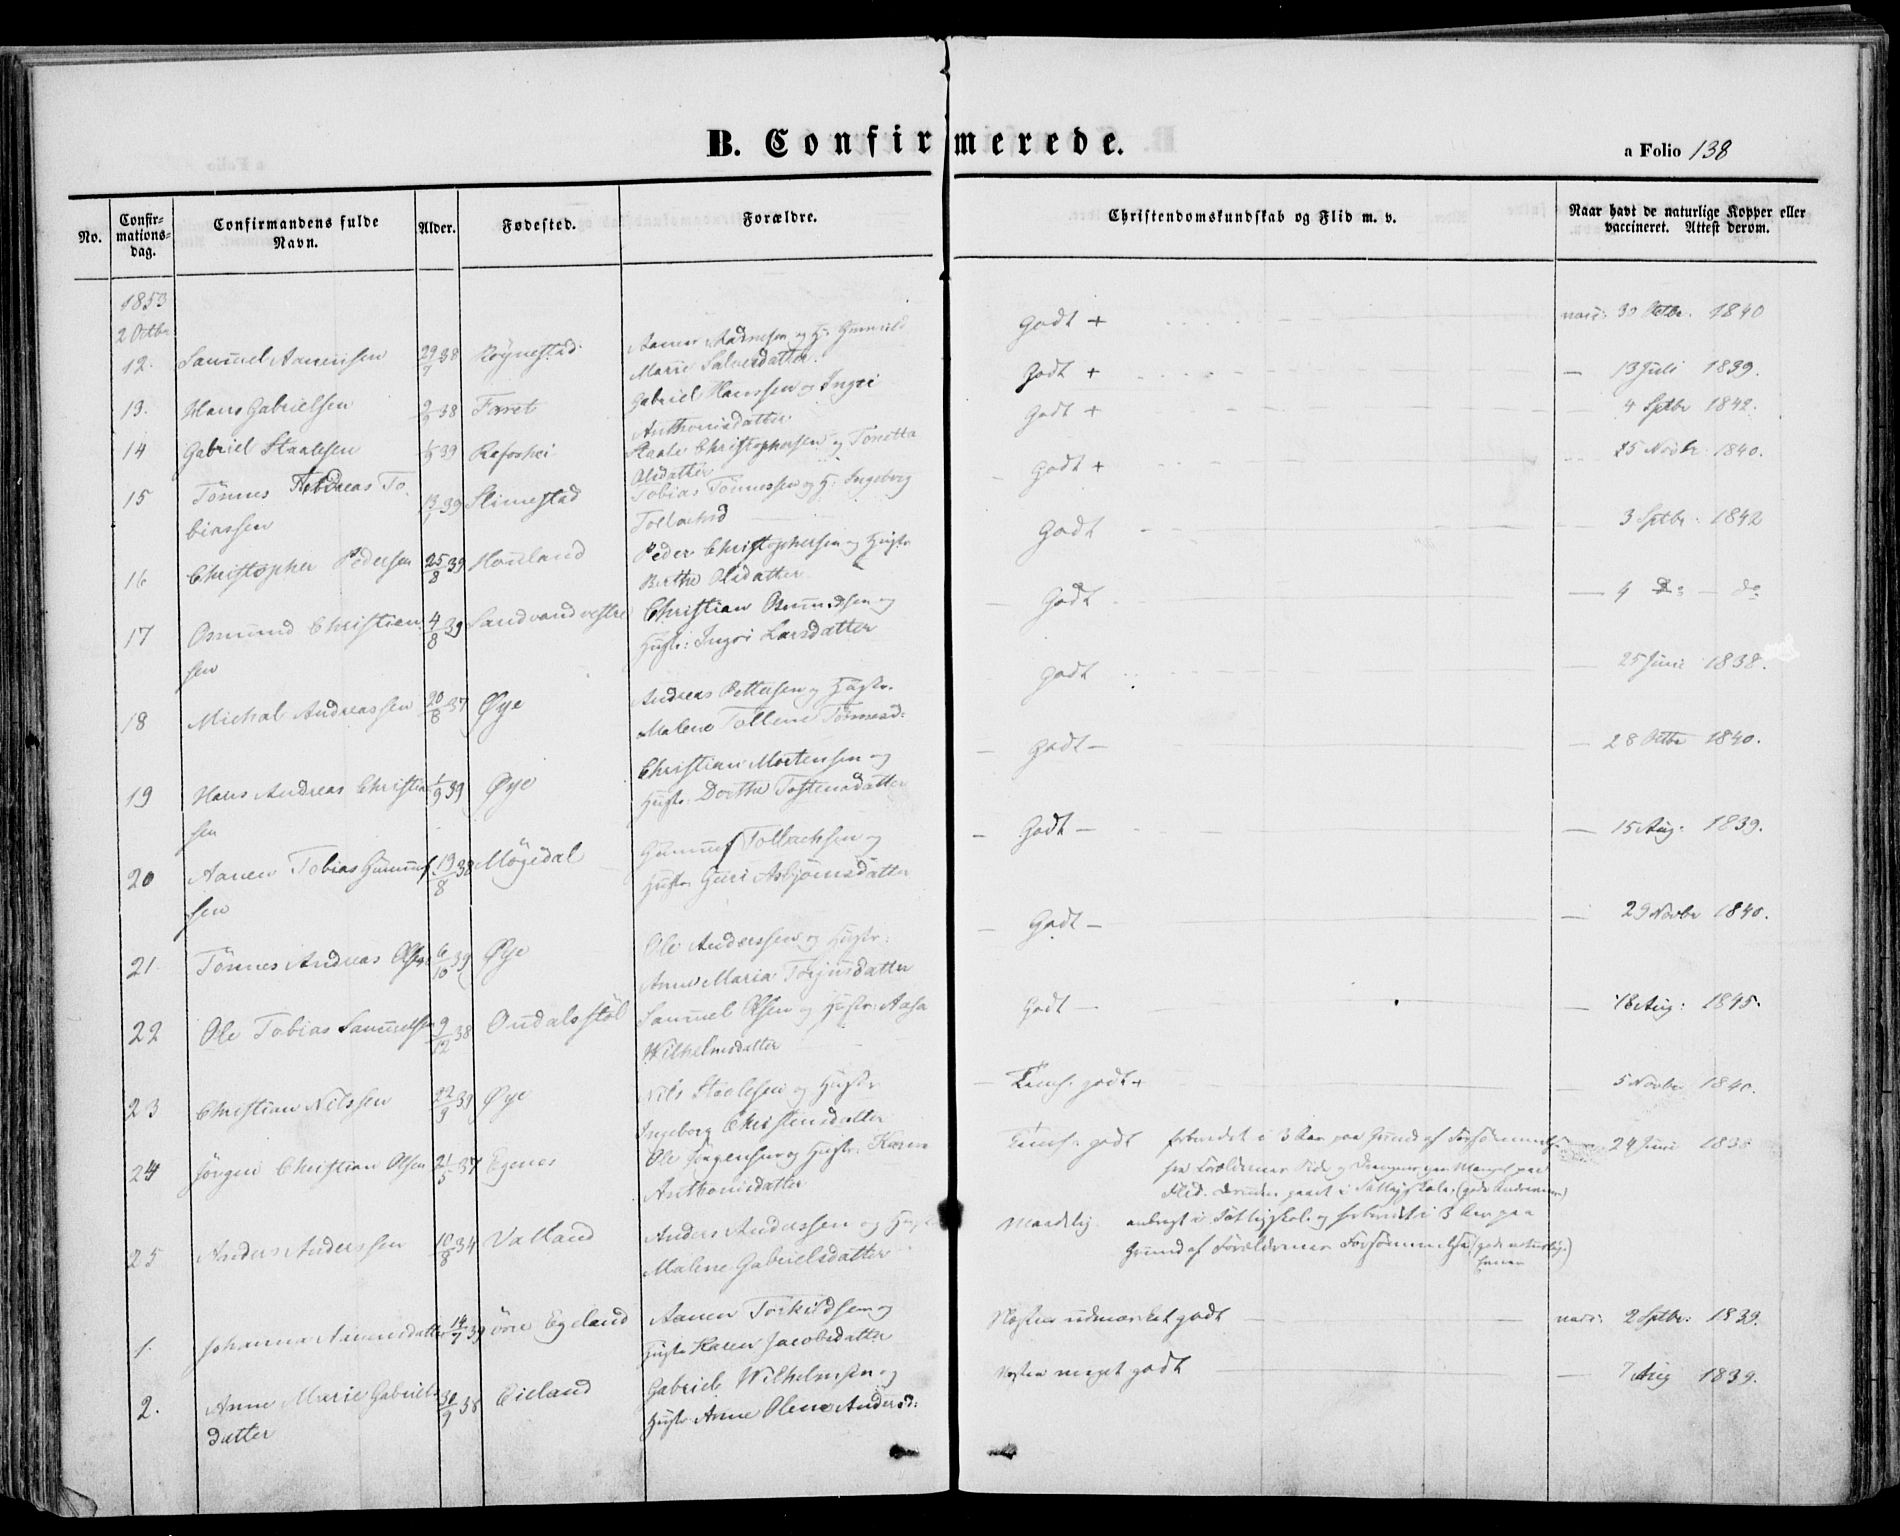 B. Confirmerede.
a Folio 138
No.
Confir-
mations-
dag.
Confirmandens fulde
Navn.
Alder.
Fødested.
Forældre.
Christendomskundskab og Flid m. v.
Naar havt de naturlige Kopper eller
vaccineret. Attest derom.
1853
2 Octbr
12. Samuel Aanensen 29/7 38 Røynestad Marie Salvesdatter. Godt + 1840
13. Hans Gabrielsen 38 Foret Gabriel Hanssen og Ingri
Anthonisdatter Godt + — 13 Juli 1839.
14 Gabriel Staalesen 39 Refoshei Staale Christophersen og Tonetta
Olsdatter Godt + 4 Sptbr 1842.
15 Tönnes Andreas To-
biassen 39 Slimestad Tobias Tönnessen og H: Ingeborg
Godt + 25 Novbr 1840.
16 Christopher Pedersen 25/8 39 Houland Peder Christophersen og Hustr
Berthe Olsdatter Godt 3 Sptbr. 1842
17 Osmund Christian-
sen 4/8 39 Sandvand vestre Christian Osmundsen og
Hustr: Ingri Larsdatter Godt — 4 do — do
18 Michal Andreassen 20/8 37 Øye Andreas Pettersen og Hustr.
Malene Tollene Tönnesd: Godt — 25 Juni 1838.
19 Hans Andreas Christian
sen 1/9 39 Øye Christian Mortensen og
Hustr: Dorthe Tostensdatter Godt — — 28 Octbr 1840.
20 Aanen Tobias Gunnuf
sen 19/8 38 Møgedal Gunnuf Tollachsen og
Hustr Guri Asbjörnsdatter Godt — — 15 Aug: 1839.
21. Tönnes Andreas Olsen 6/10 39 Øye Ole Anderssen og Hustr:
Anne Maria Torjusdatter Godt — — 29 Novbr 1840.
22 Ole Tobias Samuelsen 9/12 38 Oudalsstöl Samuel Olsen og Hustr: Aasa
Wilhelmsdatter Godt — — 18 Aug: 1845.
23 Christian Nilssen 22/9 39 Øye Nils Staalesen og Hustr
Ingeborg Christensdatter — Temf. godt + — 5 Novbr 1840.
24 Jörgen Christian Olsen 21/5 37 Egenes Ole Jörgensen og Hustr: Karen
Anthonisdatter Temf. godt forberedet i 3 Aar paa Grund af Forsömmelse
fra Forældrenes Side og Drengens egen Mangel paa
Flid. 24 Juni
25 Anders Anderssen 10/8 34 Valland Anders Anderssen og
Malene Gabrielsdatter Maadelig og forberedt i 3 Aar paa
Grund af Forældrenes Forsömmelse
1. Johanna Aanensdatter 14/7 39 Egeland Aanen Torkildsen og
Hustr Karen Jacobsdatter Næsten udmærket godt 2 Sptbr: 1839.
2. Anne Marie Gabriels
datter 30/9 38 Eieland Gabriel Wilhelmsen og
Hustr Anne Olene Andersd: Næsten meget godt — 7 Aug 1839.